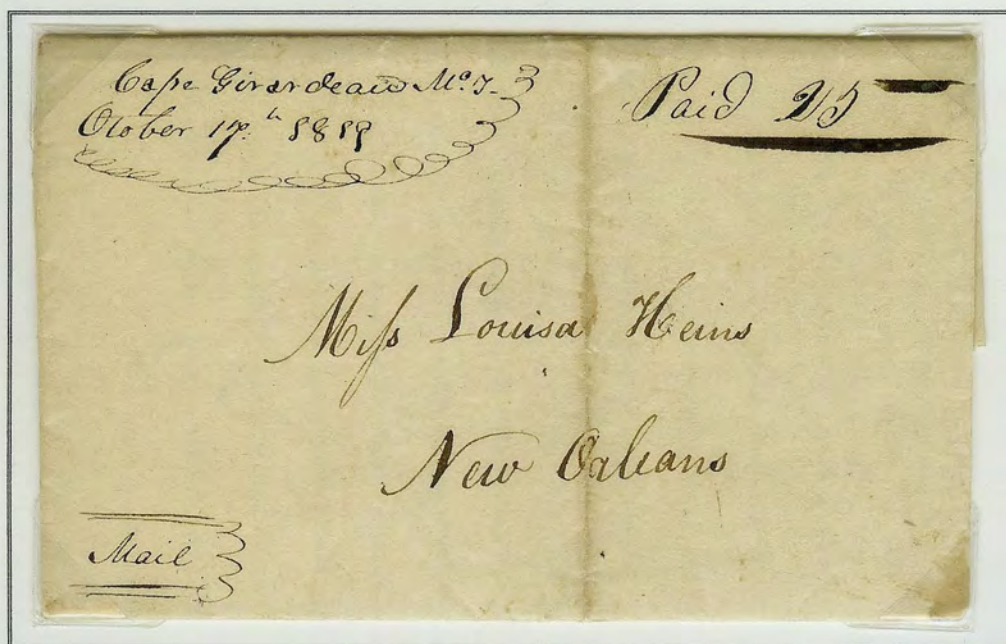 Cape Girardeau Mo. T.
Paid 25
Otober 17th 1819
Miſs Louisa Heins
New Orleans
Mail